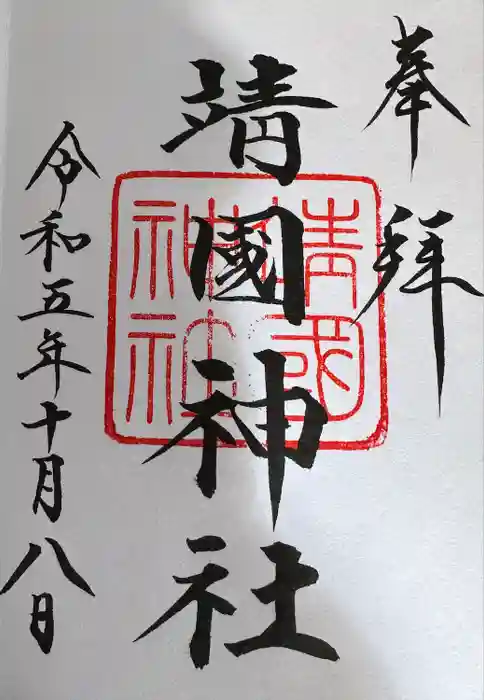 奉拝
靖國神社
靖国神社
令和五年十月八日